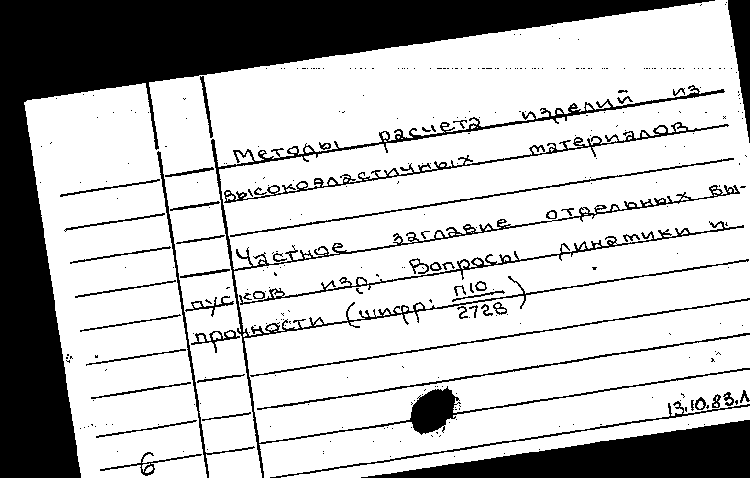 Методы расчета изделий из
высокоэластичных материалов.
Частное заглавие отдельных вы-
пусков изд.: Вопросы динамики и
прочности (шифр: П10/2728)
13.10.83.Л
6